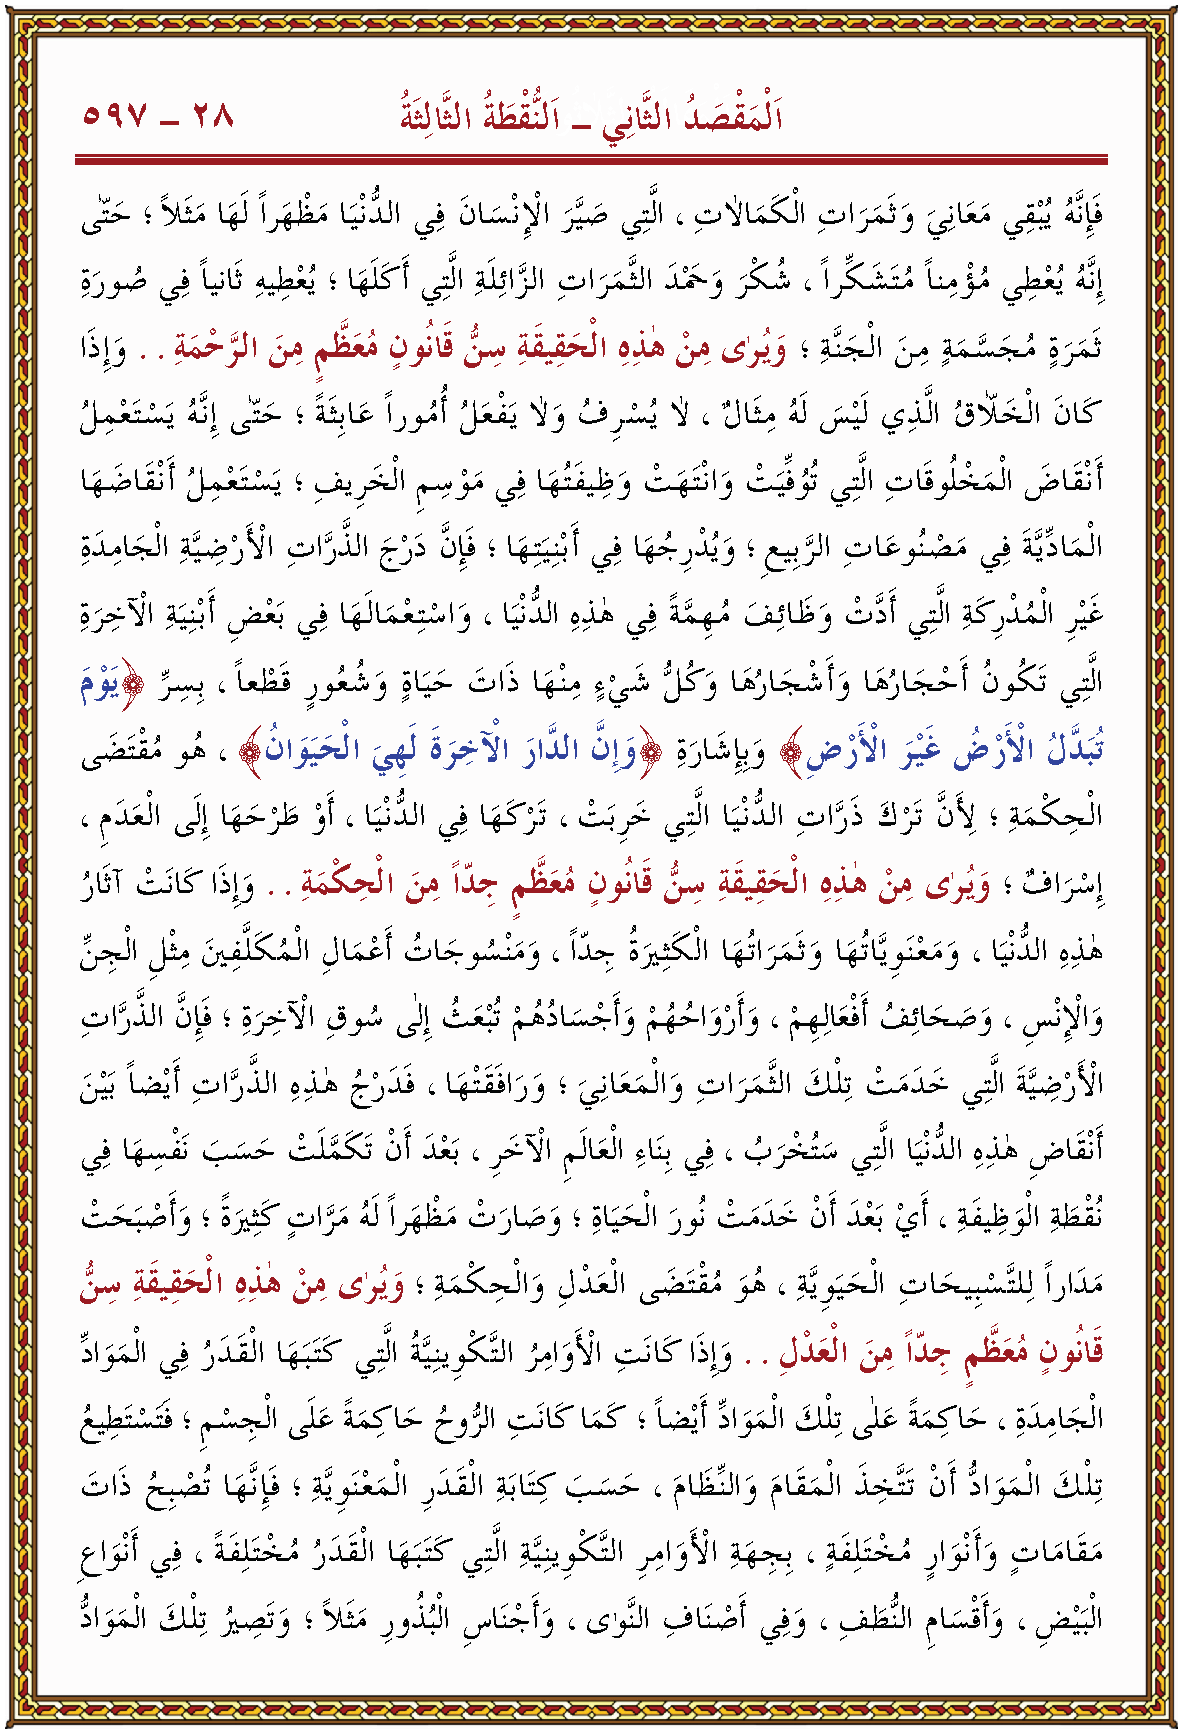 اَلْمَقْصَدُ الثَّانِي – اَلنُّقْطَةُ الثَّالِثَةُ ٢٨ – ٥٩٧
فَإِنَّهُ يُبْقِي مَعَانِيَ وَثَمَرَاتِ الْكَمَالَاتِ ، الَّتِي صَيَّرَ الْإِنْسَانَ فِي الدُّنْيَا مَظْهَراً لَهَا مَثَلاً ؛ حَتَّى
إِنَّهُ يُعْطِي مُؤْمِناً مُتَشَكِّراً ، شُكْرَ وَحَمْدَ الثَّمَرَاتِ الزَّائِلَةِ الَّتِي أَكَلَهَا ؛ يُعْطِيهِ ثَانِياً فِي صُورَةِ
ثَمَرَةٍ مُجَسَّمَةٍ مِنَ الْجَنَّةِ ؛ وَيُرٰى مِنْ هٰذِهِ الْحَقِيقَةِ سِنُّ قَانُونٍ مُعَظَّمٍ مِنَ الرَّحْمَةِ . . وَإِذَا
كَانَ الْخَلَّاقُ الَّذِي لَيْسَ لَهُ مِثَالٌ ، لَا يُسْرِفُ وَلَا يَفْعَلُ أُمُوراً عَابِثَةً ؛ حَتَّى إِنَّهُ يَسْتَعْمِلُ
أَنْقَاضَ الْمَخْلُوقَاتِ الَّتِي تُوُفِّيَتْ وَانْتَهَتْ وَظِيفَتُهَا فِي مَوْسِمِ الْخَرِيفِ ؛ يَسْتَعْمِلُ أَنْقَاضَهَا
الْمَادِّيَّةَ فِي مَصْنُوعَاتِ الرَّبِيعِ ؛ وَيُدْرِجُهَا فِي أَبْنِيَتِهَا ؛ فَإِنَّ دَرْجَ الذَّرَّاتِ الْأَرْضِيَّةِ الْجَامِدَةِ
غَيْرِ الْمُدْرِكَةِ الَّتِي أَدَّتْ وَظَائِفَ مُهِمَّةً فِي هٰذِهِ الدُّنْيَا ، وَاسْتِعْمَالَهَا فِي بَعْضِ أَبْنِيَةِ الْآخِرَةِ
الَّتِي تَكُونُ أَحْجَارُهَا وَأَشْجَارُهَا وَكُلُّ شَيْءٍ مِنْهَا ذَاتَ حَيَاةٍ وَشُعُورٍ قَطْعاً ، بِسِرِّ ﴿يَوْمَ
تُبَدَّلُ الْأَرْضُ غَيْرَ الْأَرْضِ﴾ وَبِإِشَارَةِ ﴿وَإِنَّ الدَّارَ الْآخِرَةَ لَهِيَ الْحَيَوَانُ﴾ ، هُوَ مُقْتَضَى
الْحِكْمَةِ ؛ لِأَنَّ تَرْكَ ذَرَّاتِ الدُّنْيَا الَّتِي خَرِبَتْ ، تَرْكَهَا فِي الدُّنْيَا ، أَوْ طَرْحَهَا إِلَى الْعَدَمِ ،
إِسْرَافٌ ؛ وَيُرٰى مِنْ هٰذِهِ الْحَقِيقَةِ سِنُّ قَانُونٍ مُعَظَّمٍ جِدّاً مِنَ الْحِكْمَةِ . . وَإِذَا كَانَتْ آثَارُ
هٰذِهِ الدُّنْيَا ، وَمَعْنَوِيَّاتُهَا وَثَمَرَاتُهَا الْكَثِيرَةُ جِدّاً ، وَمَنْسُوجَاتُ أَعْمَالِ الْمُكَلَّفِينَ مِثْلِ الْجِنِّ
وَالْإِنْسِ ، وَصَحَائِفُ أَفْعَالِهِمْ ، وَأَرْوَاحُهُمْ وَأَجْسَادُهُمْ تُبْعَثُ إِلٰى سُوقِ الْآخِرَةِ ؛ فَإِنَّ الذَّرَّاتِ
الْأَرْضِيَّةَ الَّتِي خَدَمَتْ تِلْكَ الثَّمَرَاتِ وَالْمَعَانِيَ ؛ وَرَافَقَتْهَا ، فَدَرْجُ هٰذِهِ الذَّرَّاتِ أَيْضاً بَيْنَ
أَنْقَاضِ هٰذِهِ الدُّنْيَا الَّتِي سَتُخْرَبُ ، فِي بِنَاءِ الْعَالَمِ الْآخَرِ ، بَعْدَ أَنْ تَكَمَّلَتْ حَسَبَ نَفْسِهَا فِي
نُقْطَةِ الْوَظِيفَةِ ، أَيْ بَعْدَ أَنْ خَدَمَتْ نُورَ الْحَيَاةِ ؛ وَصَارَتْ مَظْهَراً لَهُ مَرَّاتٍ كَثِيرَةً ؛ وَأَصْبَحَتْ
مَدَاراً لِلتَّسْبِيحَاتِ الْحَيَوِيَّةِ ، هُوَ مُقْتَضَى الْعَدْلِ وَالْحِكْمَةِ ؛ وَيُرٰى مِنْ هٰذِهِ الْحَقِيقَةِ سِنُّ
قَانُونٍ مُعَظَّمٍ جِدّاً مِنَ الْعَدْلِ . . وَإِذَا كَانَتِ الْأَوَامِرُ التَّكْوِينِيَّةُ الَّتِي كَتَبَهَا الْقَدَرُ فِي الْمَوَادِّ
الْجَامِدَةِ ، حَاكِمَةً عَلٰى تِلْكَ الْمَوَادِّ أَيْضاً ؛ كَمَا كَانَتِ الرُّوحُ حَاكِمَةً عَلَى الْجِسْمِ ؛ فَتَسْتَطِيعُ
تِلْكَ الْمَوَادُّ أَنْ تَتَّخِذَ الْمَقَامَ وَالنِّظَامَ ، حَسَبَ كِتَابَةِ الْقَدَرِ الْمَعْنَوِيَّةِ ؛ فَإِنَّهَا تُصْبِحُ ذَاتَ
مَقَامَاتٍ وَأَنْوَارٍ مُخْتَلِفَةٍ ، بِجِهَةِ الْأَوَامِرِ التَّكْوِينِيَّةِ الَّتِي كَتَبَهَا الْقَدَرُ مُخْتَلِفَةً ، فِي أَنْوَاعِ
الْبَيْضِ ، وَأَقْسَامِ النُّطَفِ ، وَفِي أَصْنَافِ النَّوٰى ، وَأَجْنَاسِ الْبُذُورِ مَثَلاً ؛ وَتَصِيرُ تِلْكَ الْمَوَادُّ